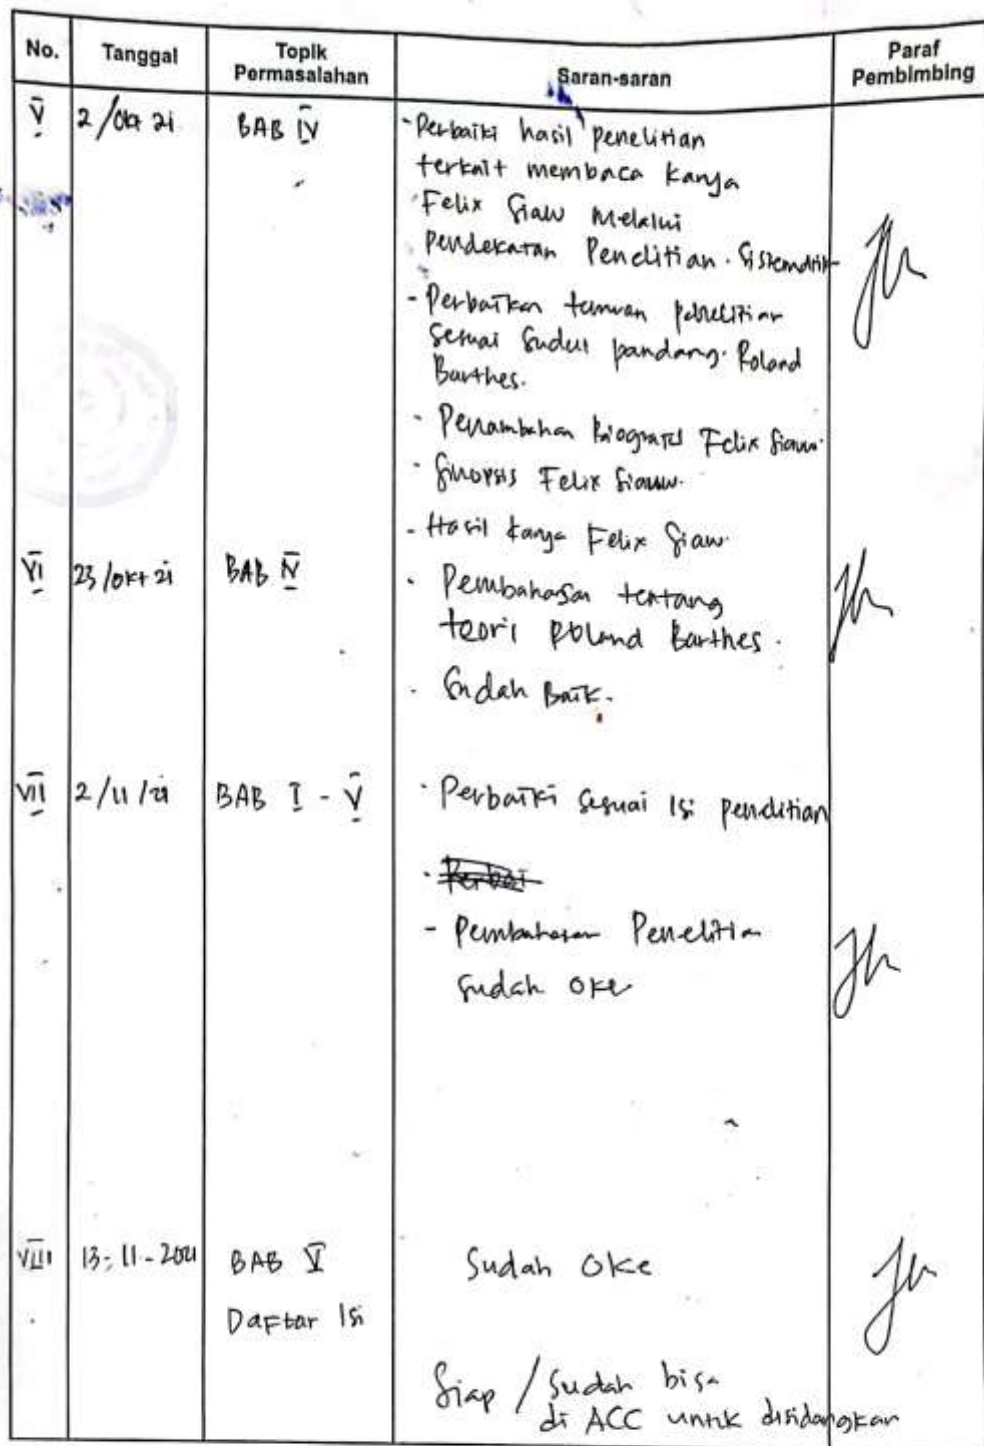 No. Tanggal Topik Permasalahan Saran-saran Paraf Pembimbing
V 2/Okt 21 BAB IV - Perbaiki hasil penelitian
terkait membaca karya
Felix Siaw Melalui
Pendekatan Penelitian. Sistematik
- Perbaikan temuan penelitian
sesuai sudut pandang. Roland
Barthes.
- Penambahan Biografi Felix Siauw.
- Sinopsis Felix Siauw.
- Hasil karya Felix Siaw.
VI 23/okt 21 BAB IV - Pembahasan tentang
teori Roland Barthes.
- Sudah Baik.
VII 2/11/21 BAB I - V - Perbaiki sesuai isi penelitian
- Perbai
- Pembahasan Penelitian
sudah oke
VIII 13-11-2021 BAB V Sudah Oke
Daftar Isi
Siap / Sudah bisa
di ACC untuk disidangkan